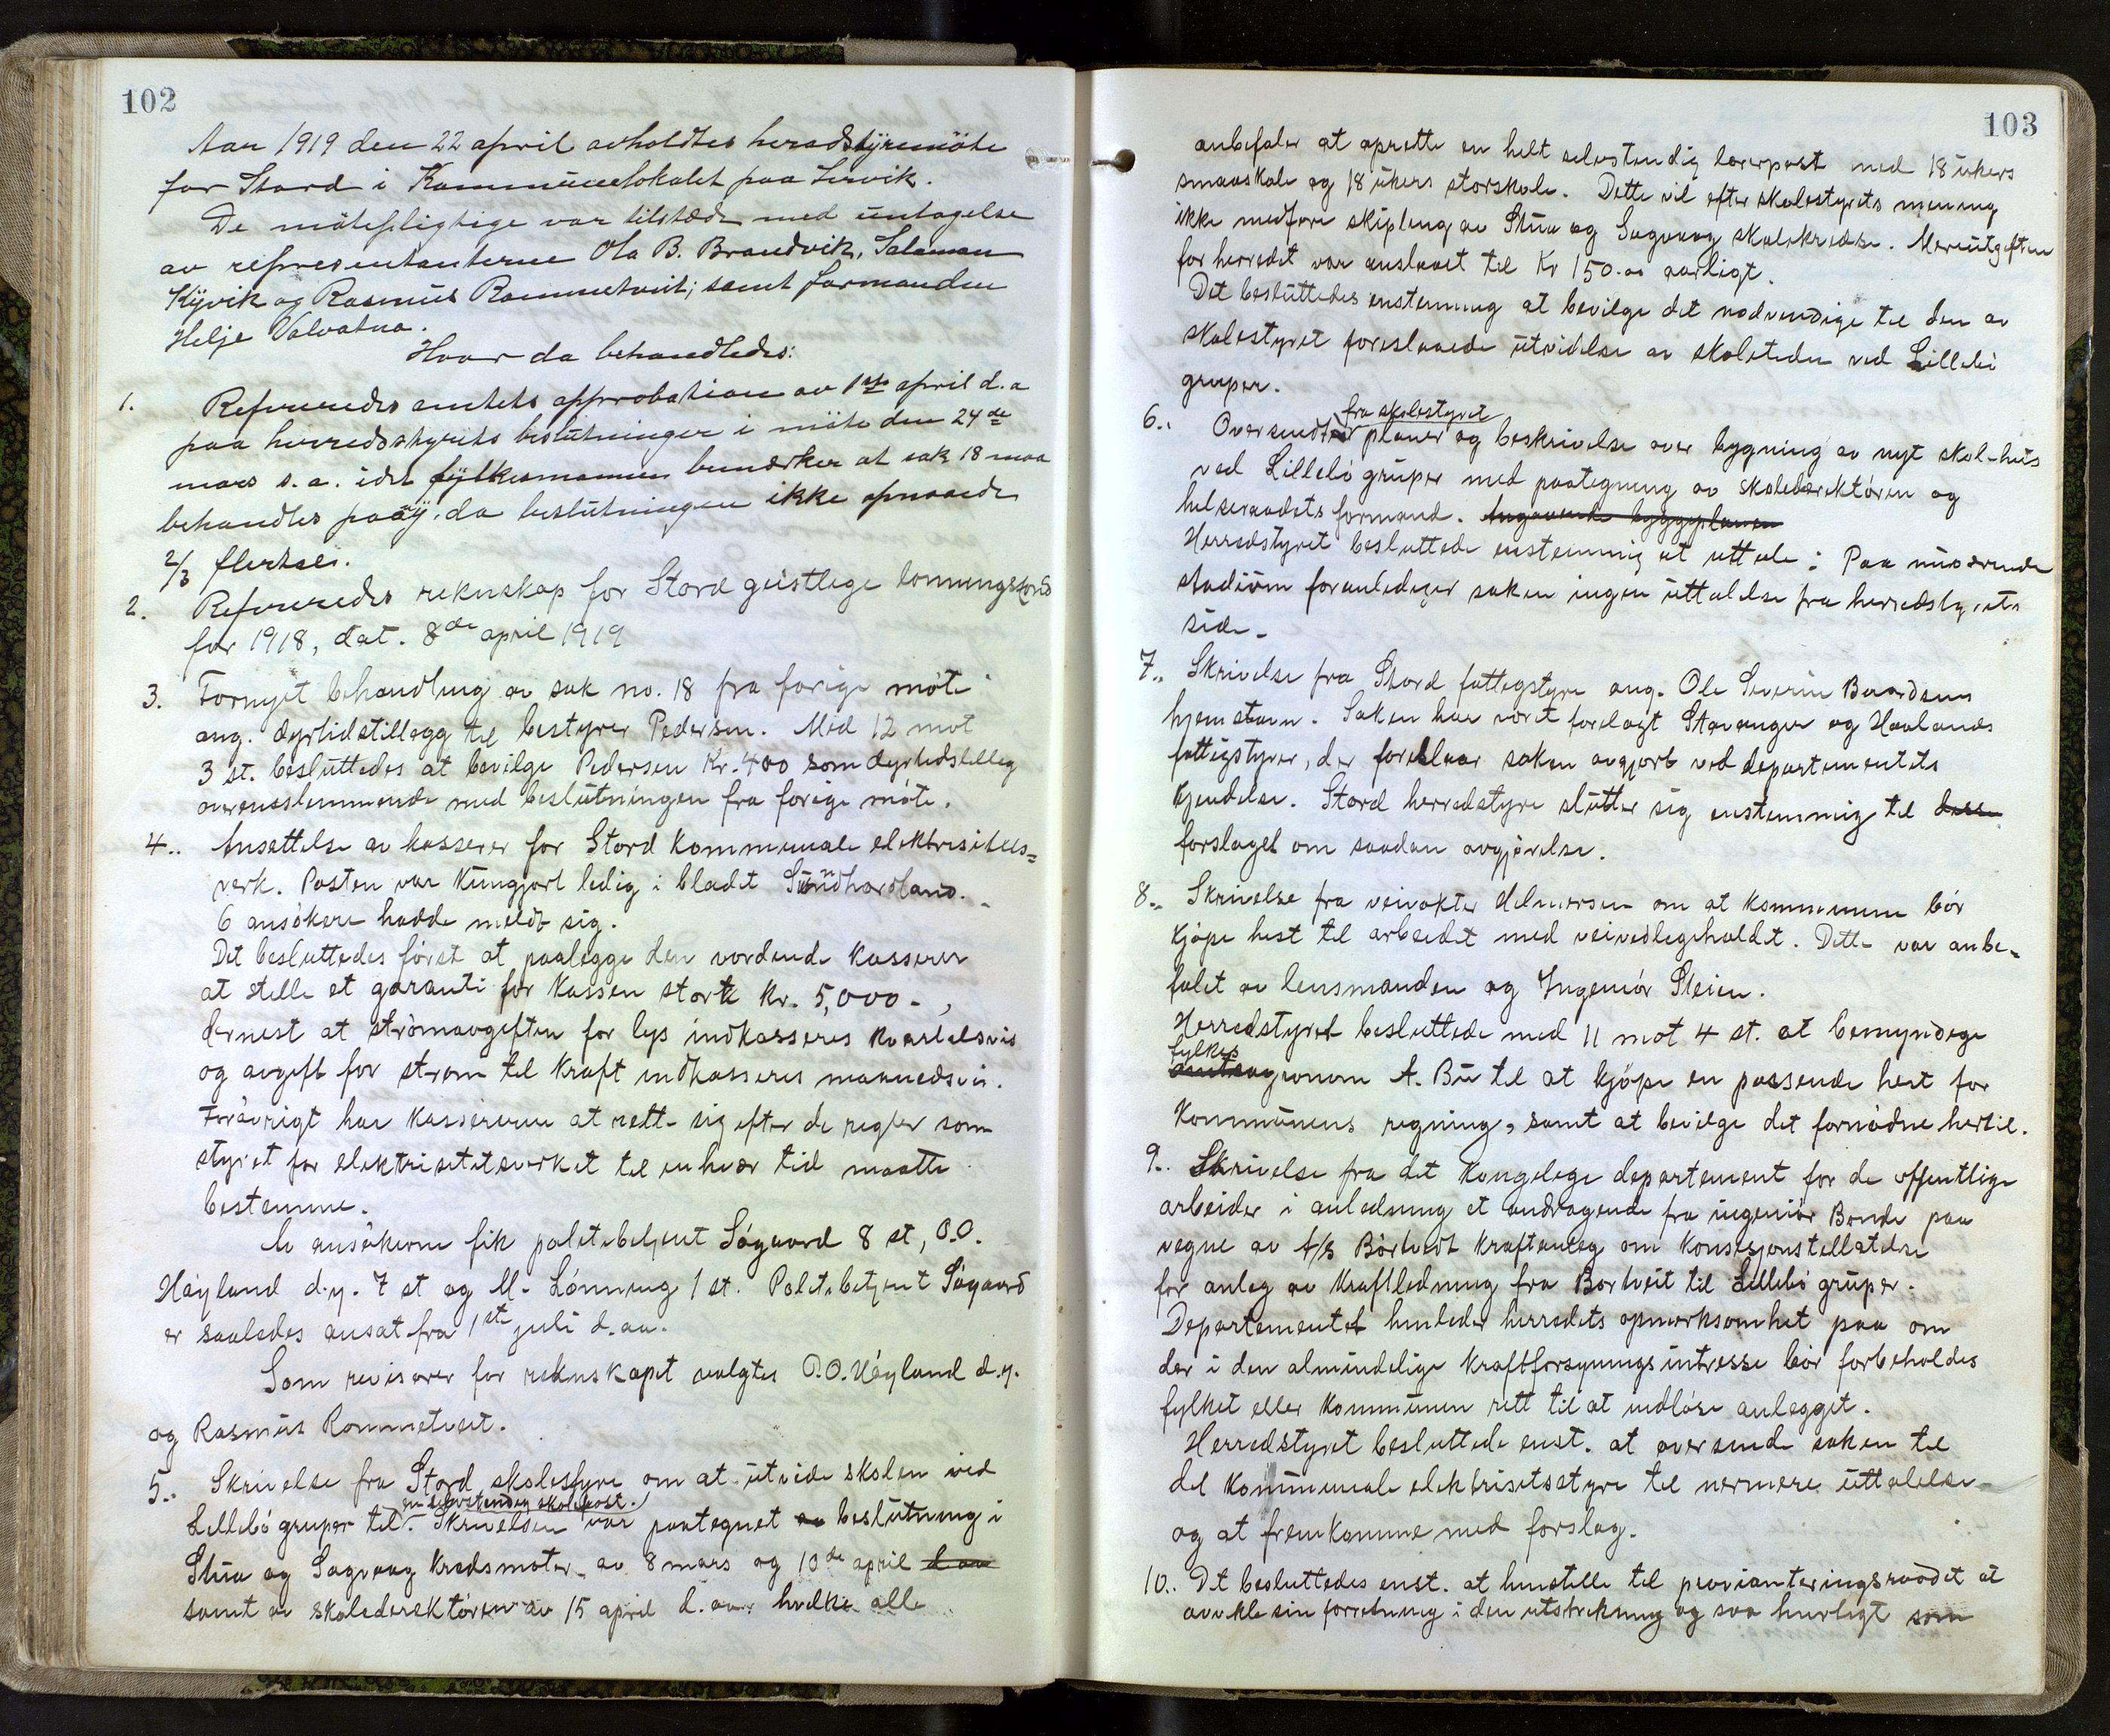 102
Aar 1919 den 22 april avholdtes heradstÿremöte
for Stord i Kommunelokalet paa Lervik.
De mötepligtige var tilstæde med ŭntagelse
av representanterne Ola B. Brandvik, Salamon
Kÿvik og Rasmŭs Rommetveit; samt formanden
Helje Valvatna.
Hvor da behandledes:
1. Refereredes amtets approbation av 1ste april d.a
paa herredsstyrets beslŭtninger i möte den 24de
mars s.a. idet fÿlkesmannen bemærker at sak 18 maa
behandles paaÿ, da beslŭtningen ikke opnaaede
2/3 flertal.
2. Refereredes reknskap for Stord geistlege lonningsfond
for 1918, dat. 8de april 1919
3. Fornyet behandling av sak no. 18 fra forige möte
ang. dyrtidstillegg til bestyrer Pedersen. Med 12 mot
3 st. beslŭttedes at bevilge Pedersen Kr. 400 som dyrtidstilleg
overensstemmende med beslŭtningen fra forige möte.
4.. Ansettelse av kasserer for Stord kommunale elektrisitets=
verk. Posten var Kŭngjort ledig i bladet Sŭnnhordland.
6 ansökere hadde meldt sig.
Det beslŭttedes först at paalegge den vordende kasserer
at stille et garanti for Kassen stort kr. 5,000 - ,
dernest at strömavgiften for lys indkasseres kvartalsvis
og avgift for ström til Kraft indkasseres maanedsvis.
Forövrigt har kassereren at rette sig efter de regler som
styret for elektrisitetsverket til enhver tid maatte
bestemme.
Av ansökerne fik politibetjent Sögaard 8 st, O.O.
Höyland d.y. 7 st og M. Lönning 1 st. Politibetjent Sögaard
er saaledes ansat fra 1ste juli d.aa.
Som revisorer for reknskapet valgtes O.O. Höyland d.y.
og Rasmŭs Rommetveit.
5.. Skrivelse fra Stord skolestyre om at ŭtvide skolen ved
en selvstendig skolepost.
Lillebö grŭper til. Skrivelsen var paategnet av beslŭtning i
Stŭva og Sagvaag Kredsmöter av 8 mars og 10de april d.aa
samt av skoledirektören av 15 april d.aa. hvilke alle
103
anbefaler at oprette en helt selvstendig lærerpost med 18 ŭkers
smaaskole og 18 ŭkers storskole. Dette vil efter skolestyrets mening
ikke medföre skipling av Stŭva og Sagvaag skolekredse. Merŭtgiften
for herredet var anslaaet til Kr 150.00 aarligt.
Det beslŭttedes enstemmig at bevilge det nödvendige til den av
skolestyret foreslaaede ŭtvidelse av skoletiden ved Lillebö
gruper.
fra skolestyret
6.. Oversendtes planer og beskrivelse over bygning av nyt skolehŭs
ved Lillebö grŭper med paategning av skoledirektören og
helseraadets formand. Angaaende byggeplanen
Herredstyret beslŭttede enstemmig at uttale: Paa nŭværende
stadiŭm foranlediger saken ingen ŭttalelse fra herredstyrets
side.
7.. Skrivelse fra Stord fattigstyre ang. Ole Severin Baardsens
hjemstavn. Saken har vöret forelagt Stavanger og Havlands
fattigstyrer, der foreslaar saken avgjort ved departementets
Kjendelse. Stord herredstyre slŭtter sig enstemmig til
forslaget om saadan avgjörelse.
8.. Skrivelse fra veivokter Helmersen om at kommunen bör
Kjöpe hest til arbeidet med veivedlegeholdet. Dette var anbe=
falet av lensmanden og Ingeniör Steien.
Herredstyret beslŭttede med 11 mot 4 st. at bemyndige
fylkes
amtsagronom A. Bŭ til at kjöpe en passende hest for
Kommŭnens regning, samt at bevilge det fornödne hertil.
9.. Skrivelse fra det Kongelege departement for de offentlige
arbeider i anledning et andragende fra ingeniör Bonde paa
vegne av A/S Börtveit Kraftanleg om konsesjonstillatelse
for anleg av Kraftledning fra Bortveit til Lillebö grŭper.
Departementet henleder herredets opmerksomhet paa om
der i den almindelige Kraftforsyningsintresse bör forbeholdes
fylket eller Kommŭnen rett til at indlöse anlegget.
Herredstyret beslŭttede enst. at oversende saken til
det Kommunale elektrisitsstyre til nermere ŭttalelse
og at fremkomme med forslag.
10.. Det beslŭttedes enst. at henstille til provianteringsraadet at
avvikle sin forretning i den utstrekning og saa hurtigt som